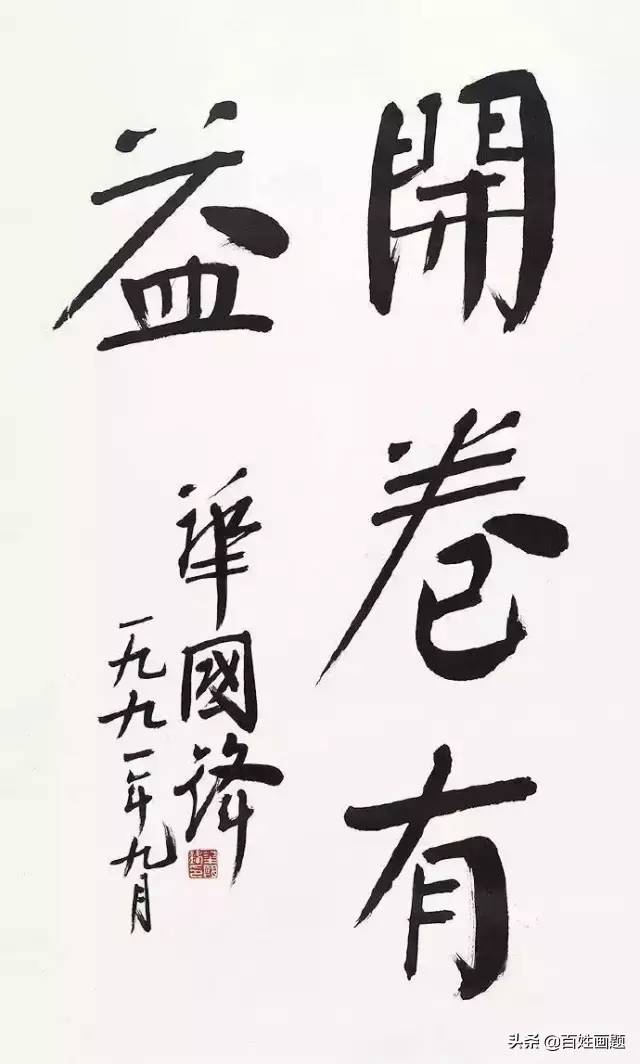 開卷有
益
華國鋒
一九九一年九月
头条 @百姓画题